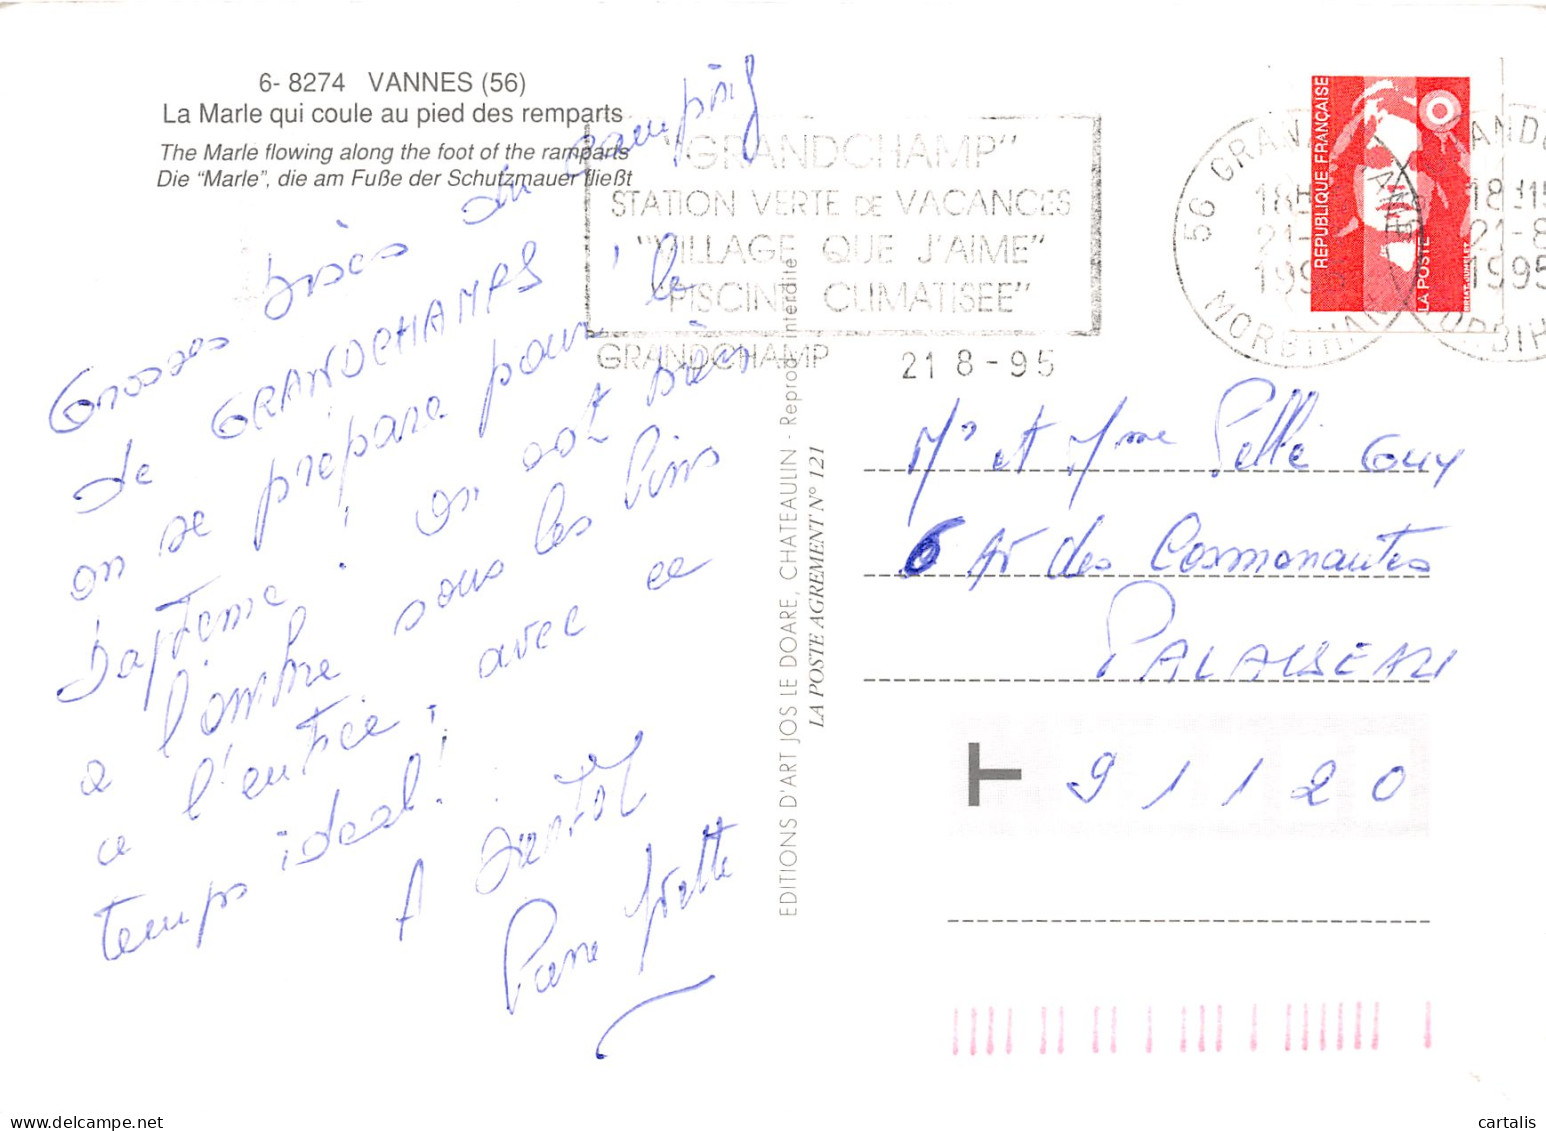 6- 8274 VANNES (56)
La Marle qui coule au pied des remparts
The Marle flowing along the foot of the ramparts
Die “Marle”, die am Fuße der Schutzmauer fließt
Grosses bises du camping
de GRANDCHAMPS ' le
on se prépare pour
bapteme ! on est bien
a l'ombre sous les pins
a l'entrée, avec ce
temps ideal !
A bientot
Yvette
"GRANDCHAMP"
STATION VERTE DE VACANCES
"VILLAGE QUE J'AIME"
"PISCINE CLIMATISEE"
GRANDCHAMP 21 8 - 95
56 GRAND
18H
21-
199
MORBIHAN
18H15
21-8
1995
REPUBLIQUE FRANÇAISE
LA POSTE
EDITIONS D'ART JOS LE DOARE, CHATEAULIN - Reprod. interdite
LA POSTE AGREMENT N° 121
Mr et Mme Guy
6 Av des Cosmonautes
PALAISEAU
T 91120
cartalis